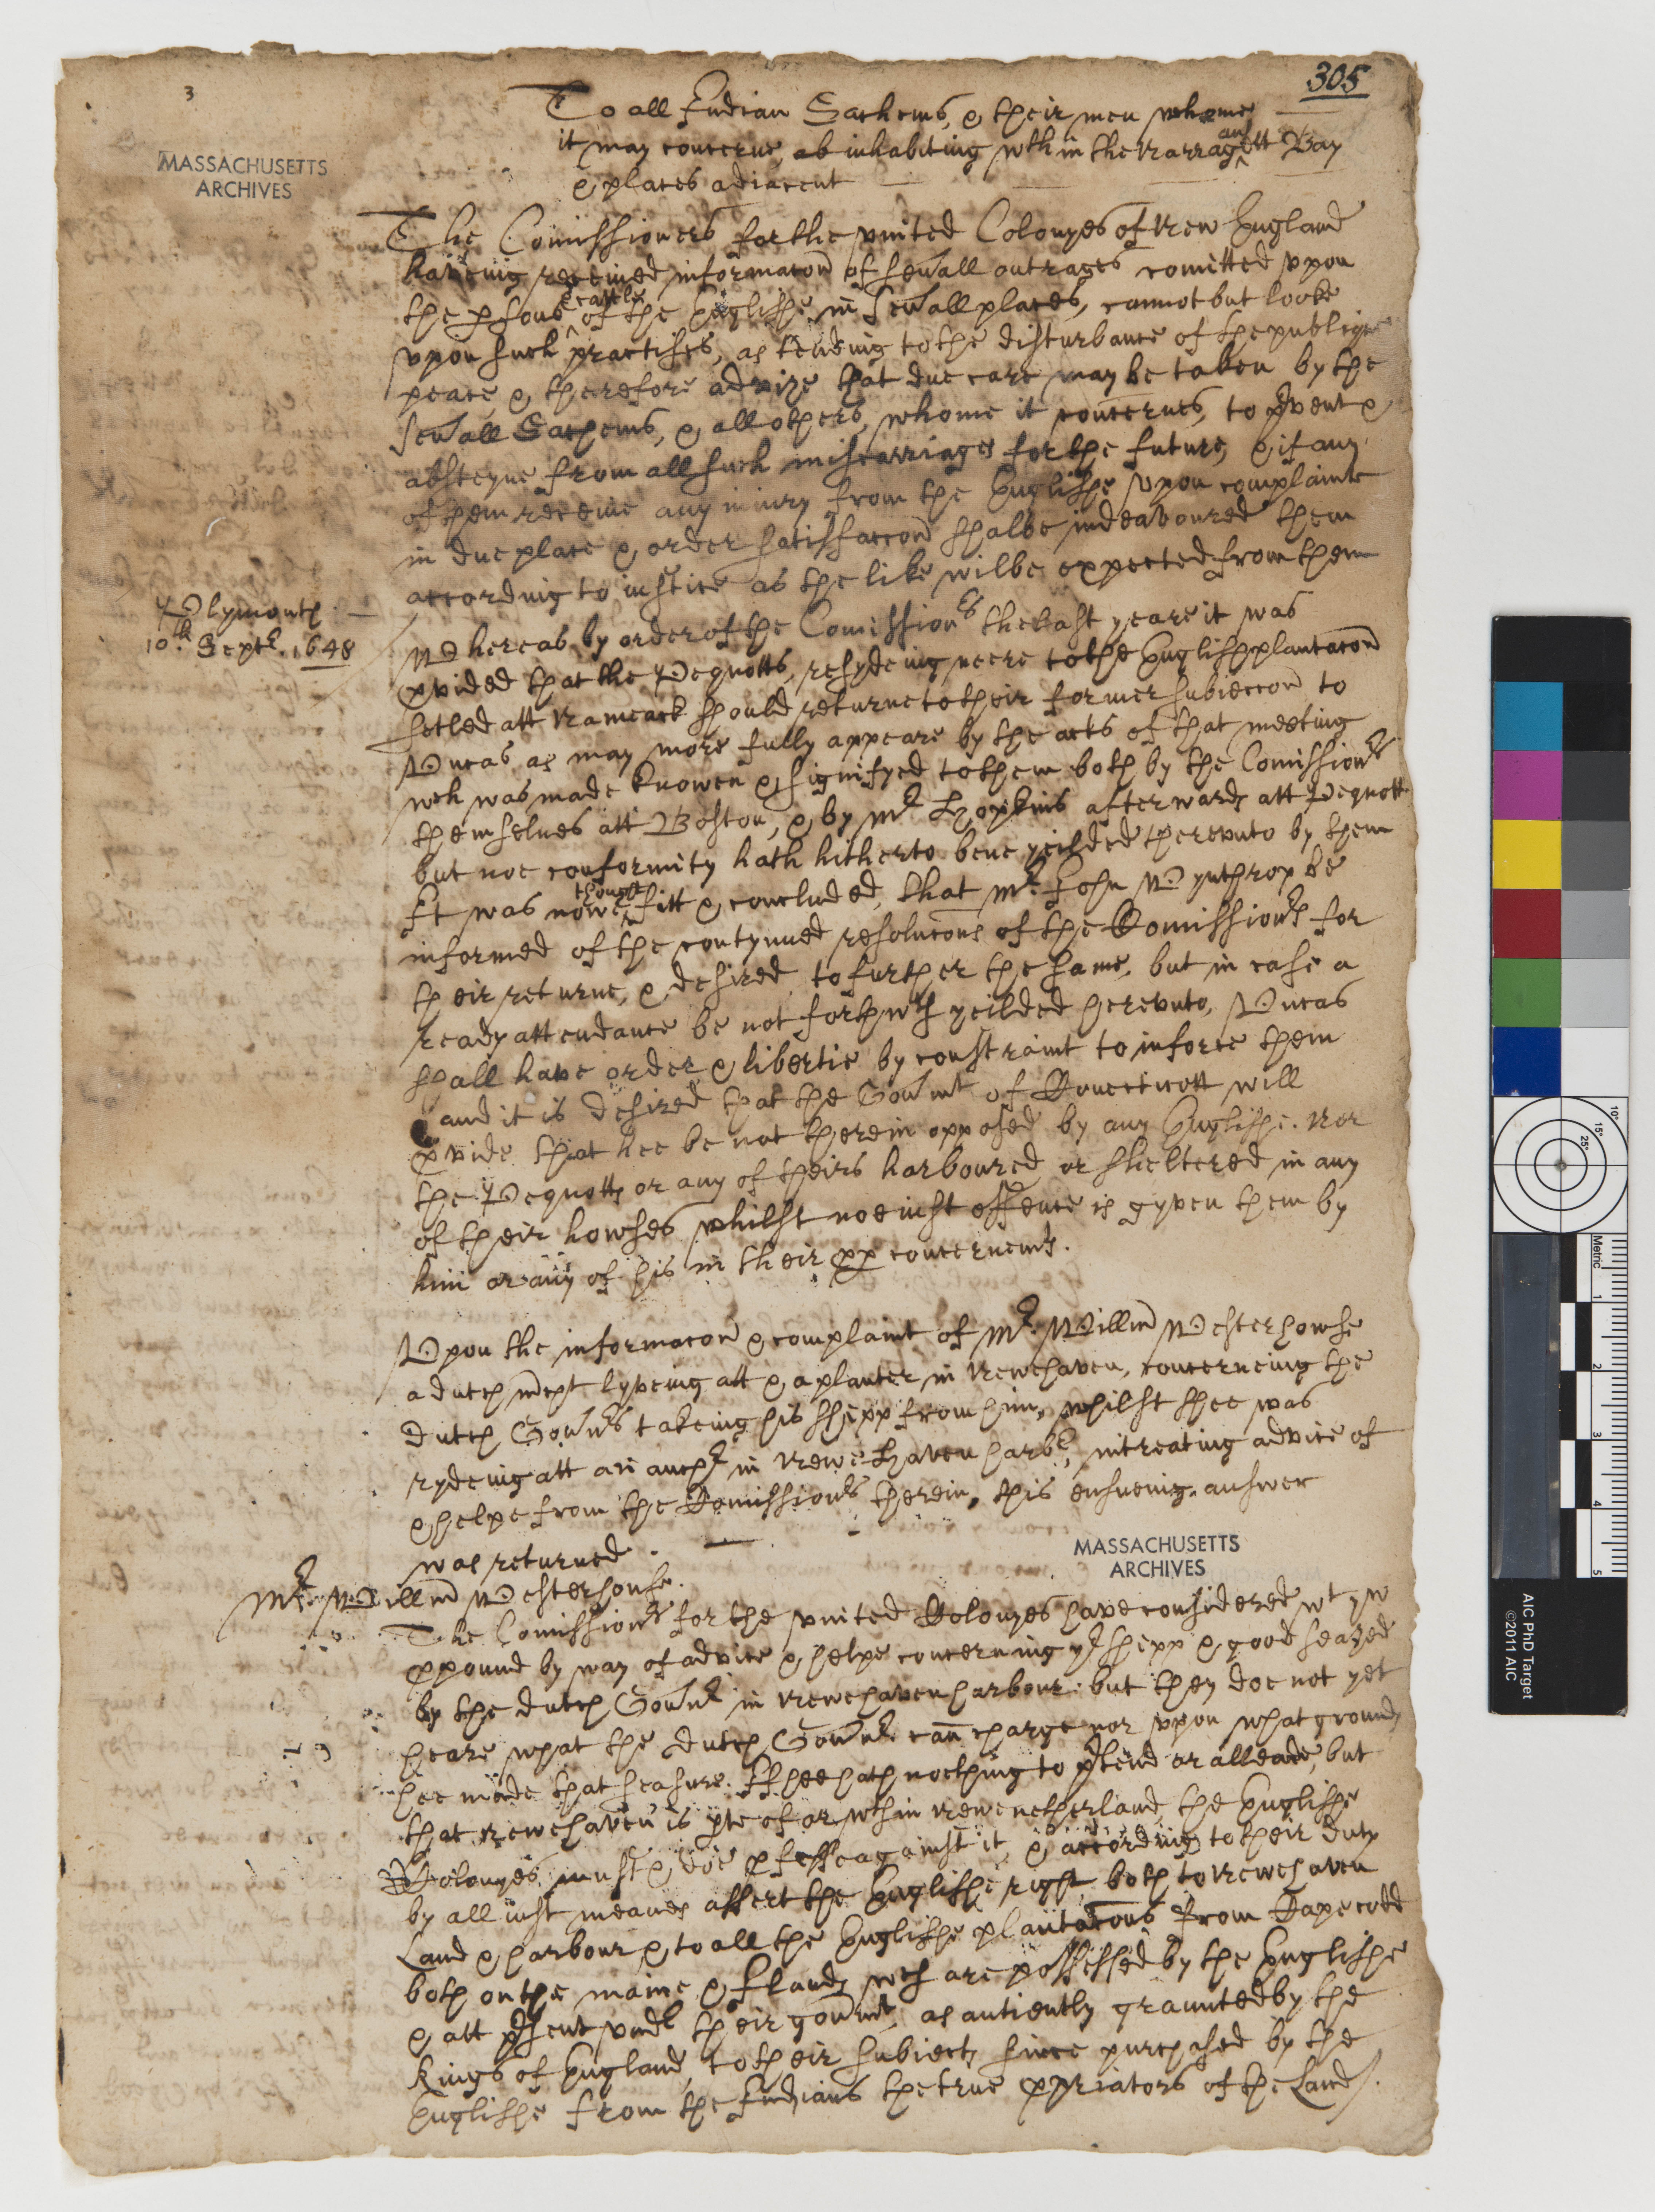 305
3
MASSACHUSETTS
ARCHIVES
To all Indian Sachems, & their men whome
it may concerne, ab inhabiting wthin the Narragansett Bay
& places adiacent
The Comissioners for the vnited Colonyes of New England
haveing receiued informacon of seuall outrages comitted vpon
the psons & cattle of the Englishe in seuall places, cannot but looke
vpon such practises, as tending to the disturbance of the publique
peace, & therefore advize that due care may be taken by the
seuall Sachems, & all others, whome it concernes, to pvent &
absteyne from all such miscarriages for the future, & if any
of them receiue any iniury from the Englishe vpon complainte
in due place & order satisfaccon shalbe indeavoured them
according to iustice as the like wilbe expected from them
Plymouth
10th. Septr. 1648
Whereas by order of the Comissionrs the last yeare it was
pvided that the Pequotts, resydeing neere to the English plantacon
setled att Nameack should returne to their former subieccon to
Vncas as may more fully appeare by the acts of that meeting
wch was made knowen & signifyed to them both by the Comissionrs
themselues att Boston, & by Mr Hopkins afterwards att Pequott
but noe conformity hath hitherto bene yeilded therevnto by them
It was nowe thought fitt & concluded, that Mr. John Wynthrop be
informed of the contynued resolucons of the Comissionrs for
their returne, & desired to further the same. but in case a
ready attendance be not forthwth yeilded herevnto, Vncas
shall have order & libertie by constraint to inforce them
and it is desired that the Gouermt of Conecticott will
pvide that hee be not therein opposed by any Englishe. Nor
the Pequotts or any of theirs harboured or sheltered in any
of their howses whilst noe iust offence is gyven them by
him or any of his in their pp concernemts.
Vpon the informacon & complaint of Mr. Willm Westerhowse
a dutch mcht lyveing att & a planter in Newehaven, concerneing the
dutch Gounrs takeing his shipp from him, whilst shee was
rydeing att an anchr in Newe Haven harbr, intreating advice of
& helpe from the Comissionrs therein, this ensueing answer
was returned.
MASSACHUSETTS
ARCHIVES
Mr. Willm Westerhouse.
The Comissionrs for the vnited Colonyes have considered wt yw
ppound by way of advice & helpe concerning yr shipp & good seazed
by the dutch Gounr in Newehaven harbour. but they doe not yet
heare what the dutch Gounr can charge nor vpon what grounds
hee made that seasure. If hee hath nothing to ptend or alleadge, but
that Newehaven is pte of or wthin Newe netherland, the Englishe
Colonyes must & doe pfesse against it, & according to their duty
by all iust meanes assert the Englishe right, both to Newehaven
Land & harbour & to all the Englishe plantacons from Cape codd
both on the maine & Ilands wch are possessed by the Englishe
& att psent vndr their gouermt, as antiently graunted by the
Kings of England, to their subiects since purchased by the
Englishe from the Indians the true ppriators of the Land.
Metric
1
2
3
4
5
10°
15°
25°
AIC PhD Target
©2011 AIC